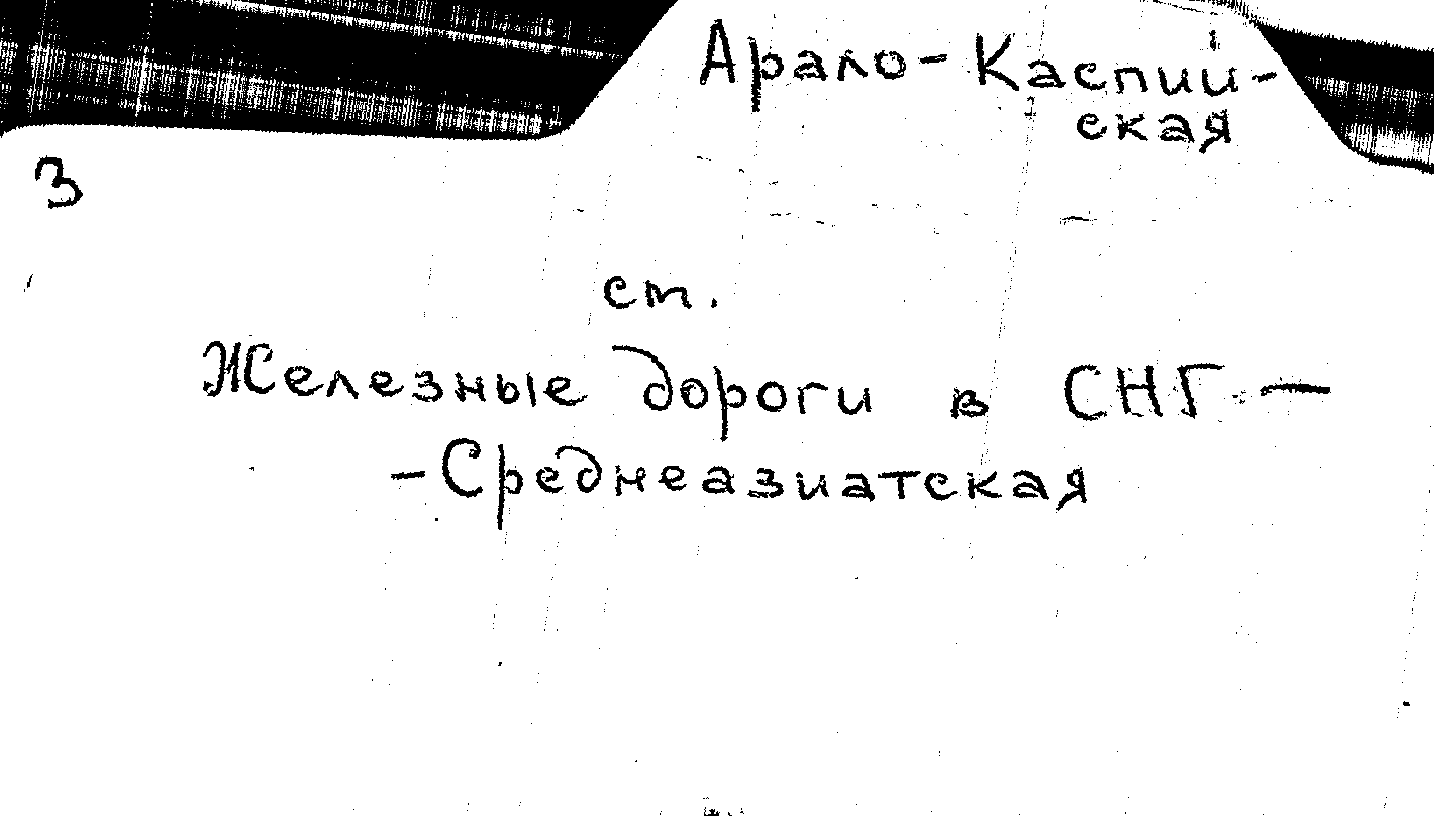 Арало-Каспий-
ская
3
ст.
Железные дороги в СНГ —
- Среднеазиатская